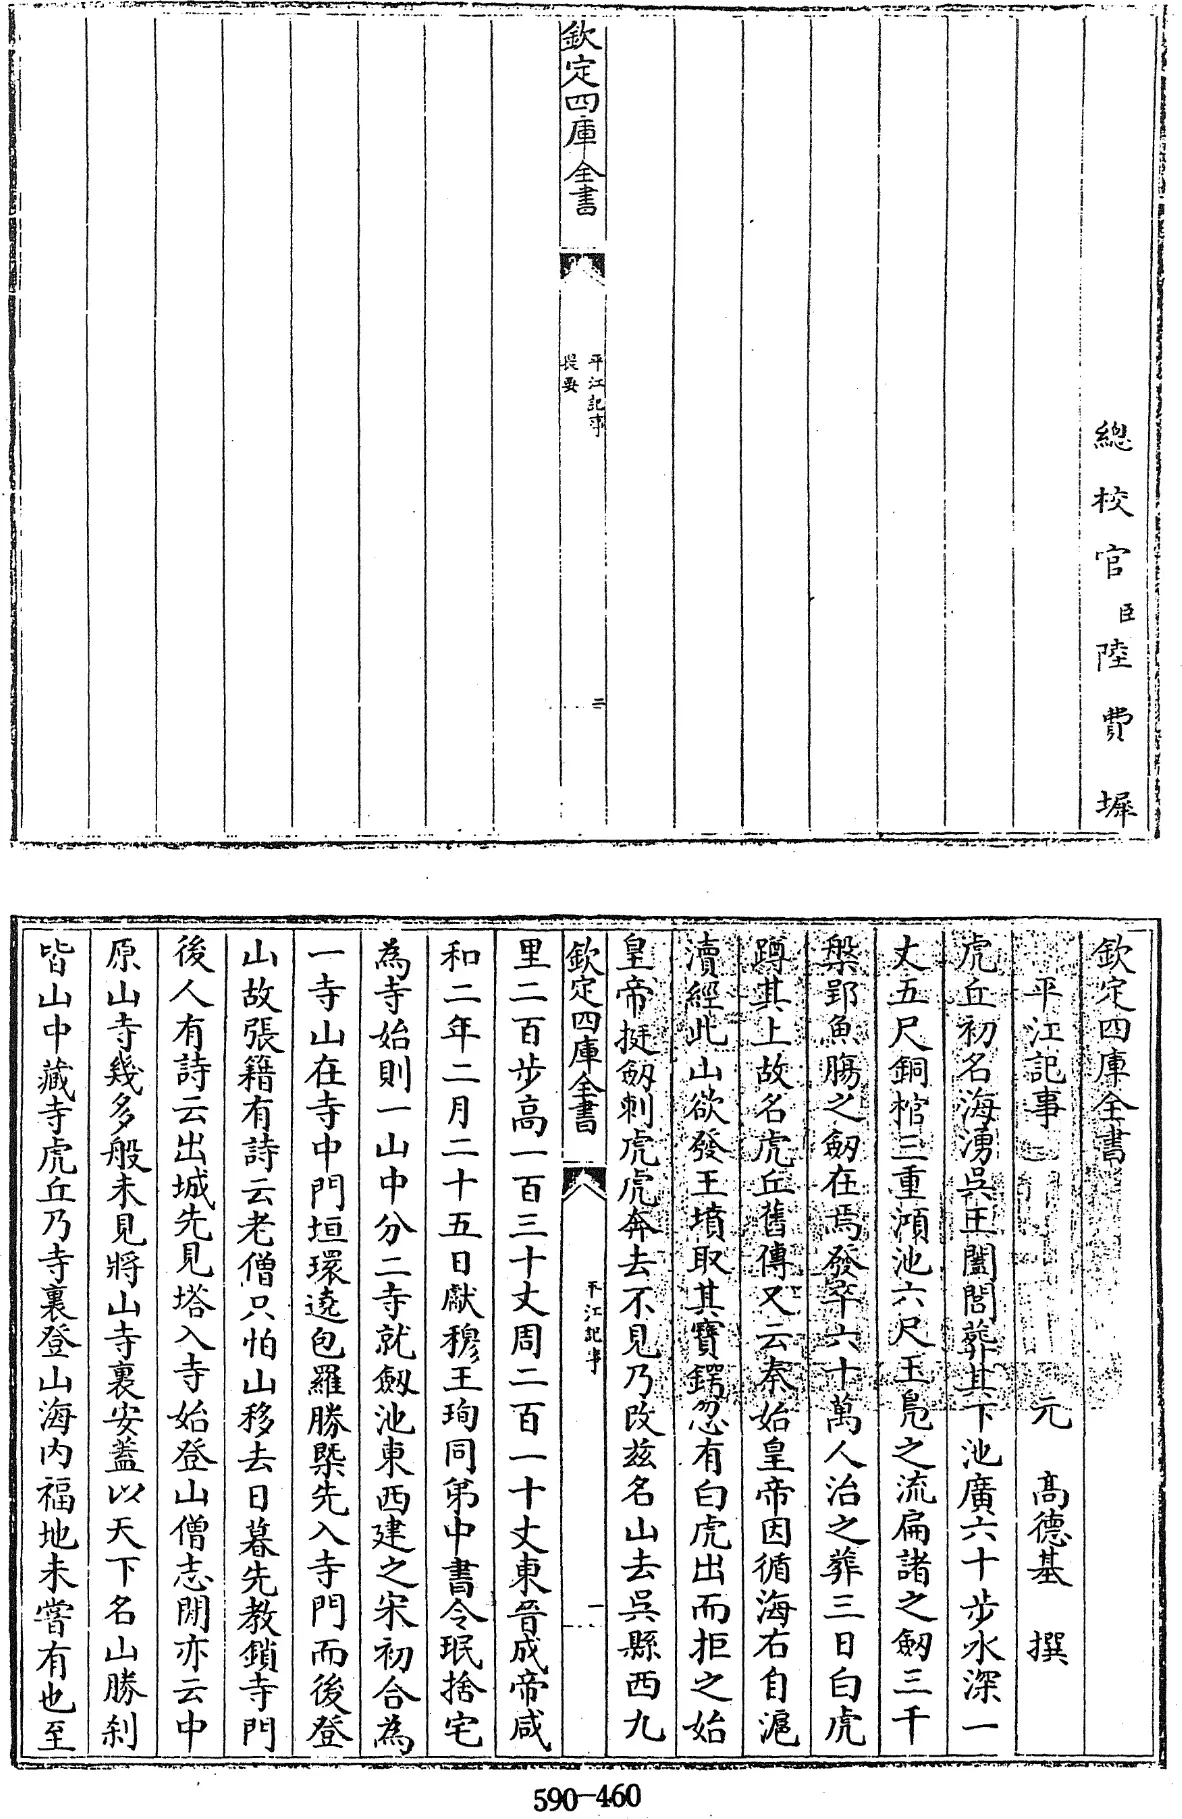 總校官臣陸費墀
欽定四庫全書
平江記事
提要
二
欽定四庫全書
平江記事
元 高德基 撰
虎丘初名海湧吳王闔閭葬其下池廣六十步水深一
丈五尺銅棺三重澒池六尺玉鳧之流扁諸之劒三千
槃郢魚腸之劒在焉發卒六十萬人治之葬三日白虎
蹲其上故名虎丘舊傳又云秦始皇帝因循海右自滬
瀆經此山欲發王墳取其寶鍔忽有白虎出而拒之始
皇帝挺劒刺虎虎奔去不見乃改兹名山去吳縣西九
欽定四庫全書
平江記事
一
里二百步高一百三十丈周二百一十丈東晉成帝咸
和二年二月二十五日獻穆王珣同弟中書令珉捨宅
為寺始則一山中分二寺就劔池東西建之宋初合為
一寺山在寺中門垣環遶包羅勝槩先入寺門而後登
山故張籍有詩云老僧只怕山移去日暮先教鎖寺門
後人有詩云出城先見塔入寺始登山僧志閒亦云中
原山寺幾多般未見將山寺裏安蓋以天下名山勝刹
皆山中藏寺虎丘乃寺裏登山海内福地未嘗有也至
590-460